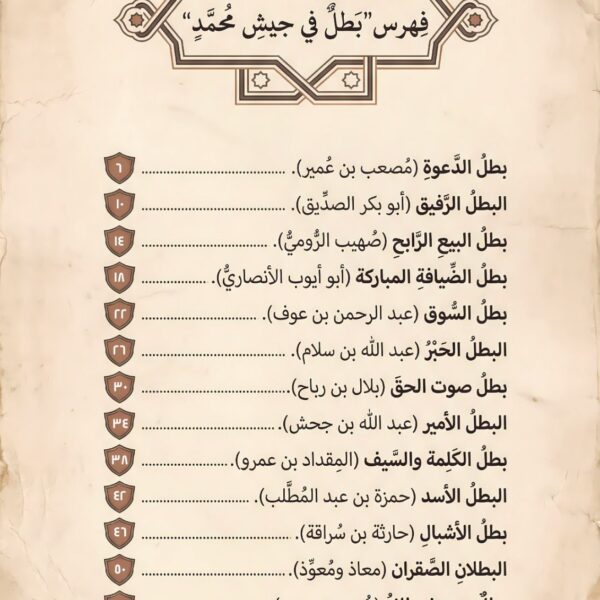 فِهرس”بَطلٌ في جيشِ مُحمَّدٍ“
بطلُ الدَّعوةِ (مُصعب بن عُمير). ٦
البطلُ الرَّفيق (أبو بكر الصدِّيق). ١٠
بطلُ البيعِ الرَّابحِ (صُهيب الرُّوميُّ). ١٤
بطلُ الضِّيافةِ المباركة (أبو أيوب الأنصاريُّ). ١٨
بطلُ السُّوق (عبد الرحمن بن عوف). ٢٢
البطلُ الحَبْرُ (عبد الله بن سلام). ٢٦
بطلُ صوت الحقَ (بلال بن رباح). ٣٠
البطلُ الأمير (عبد الله بن جحش). ٣٤
بطلُ الكَلِمة والسَّيف (المِقداد بن عمرو). ٣٨
البطلُ الأسد (حمزة بن عبد المُطَّلب). ٤٢
بطلُ الأشبالِ (حارثة بن سُراقة). ٤٦
البطلانِ الصَّقران (معاذ ومُعوِّذ). ٥٠